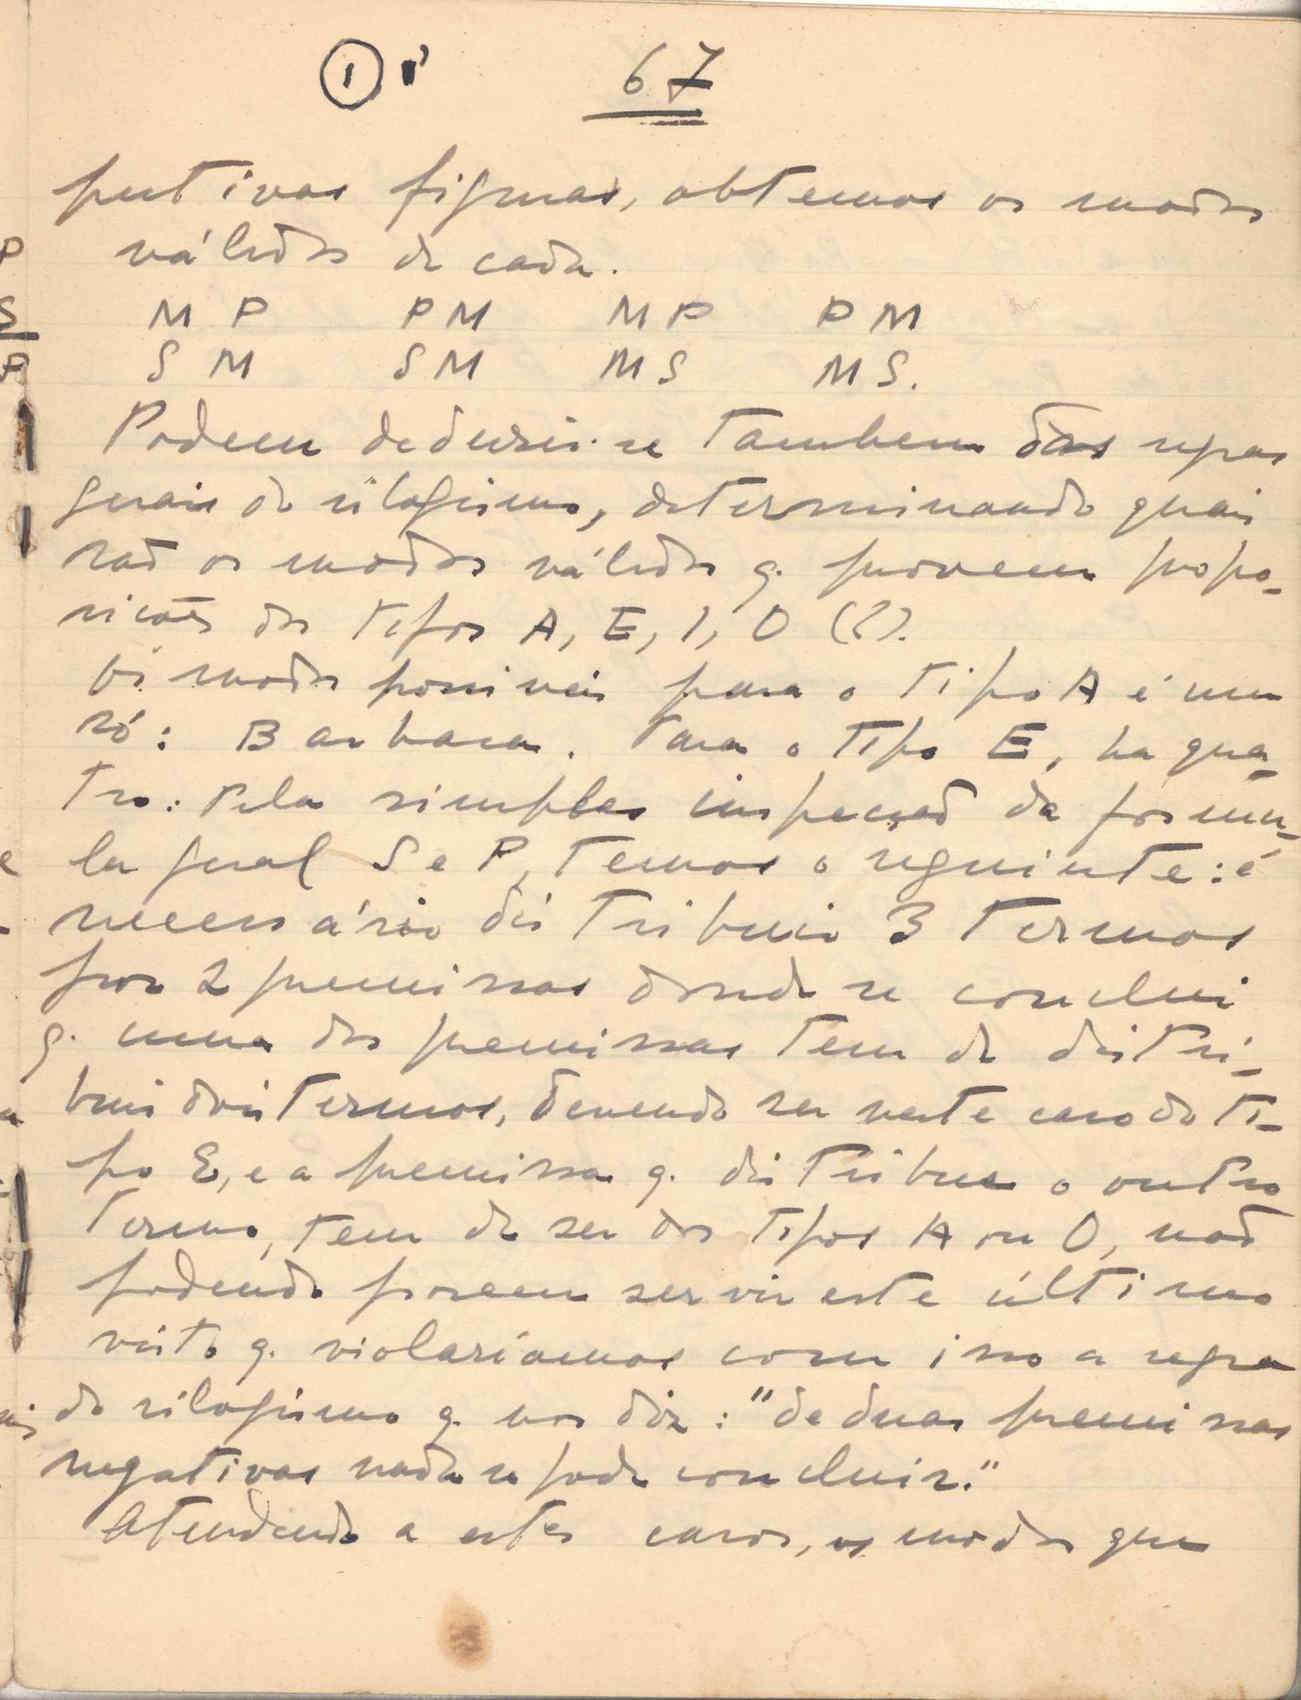 ① 1'
67
pectivas figuras, obtemos os modos
válidos de cada.
M P    P M    M P    P M
S M    S M    M S    M S.
Podem deduzir-se tambem das regras
gerais do silogismo, determinando quais
são os modos válidos q. provem propo-
sicões dos tipos A, E, I, O (?).
Os modos possiveis para o tipo A é um
só: Barbara. Para o tipo E, ha qua-
tro: Pela simples inspecção da formu-
la geral S e P, temos o seguinte: é
necessário distribuir 3 termos
por 2 premissas donde se conclui
q. uma das premissas tem de distri-
buir dois termos, devendo ser neste caso do ti-
po E, e a premissa q. distribue o outro
termo, tem de ser dos tipos A ou O, não
podendo porem servir este último
visto q. violaríamos com isso a regra
do silogismo q. nos diz: "de duas premissas
negativas nada se pode concluir."
Atendendo a estes casos, os modos que